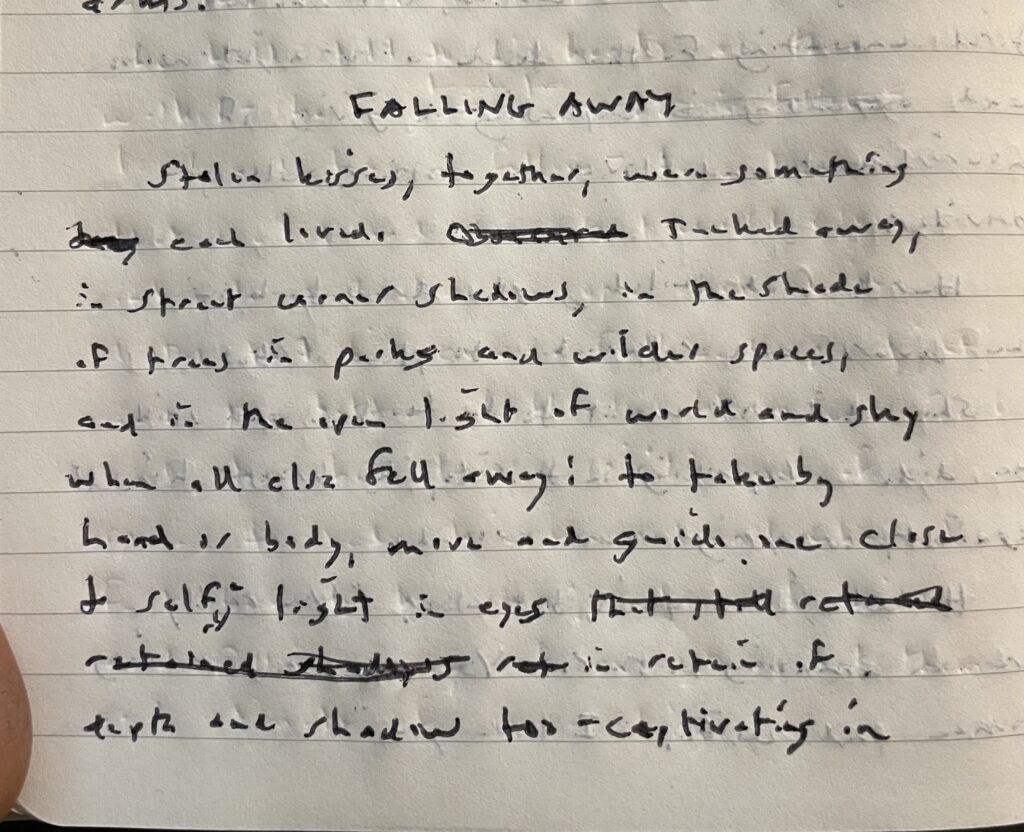 arms.
FALLING AWAY
Stolen kisses, together, were something
each loved. Tucked away,
in street corner shadows, in the shade
of trees in parks and wilder spaces,
and in the open light of world and sky
when all else fell away: to take by
hand or body, move and guide one close
to self; light in eyes that still
retained shadows in retain of
depth and shadow too - captivating in